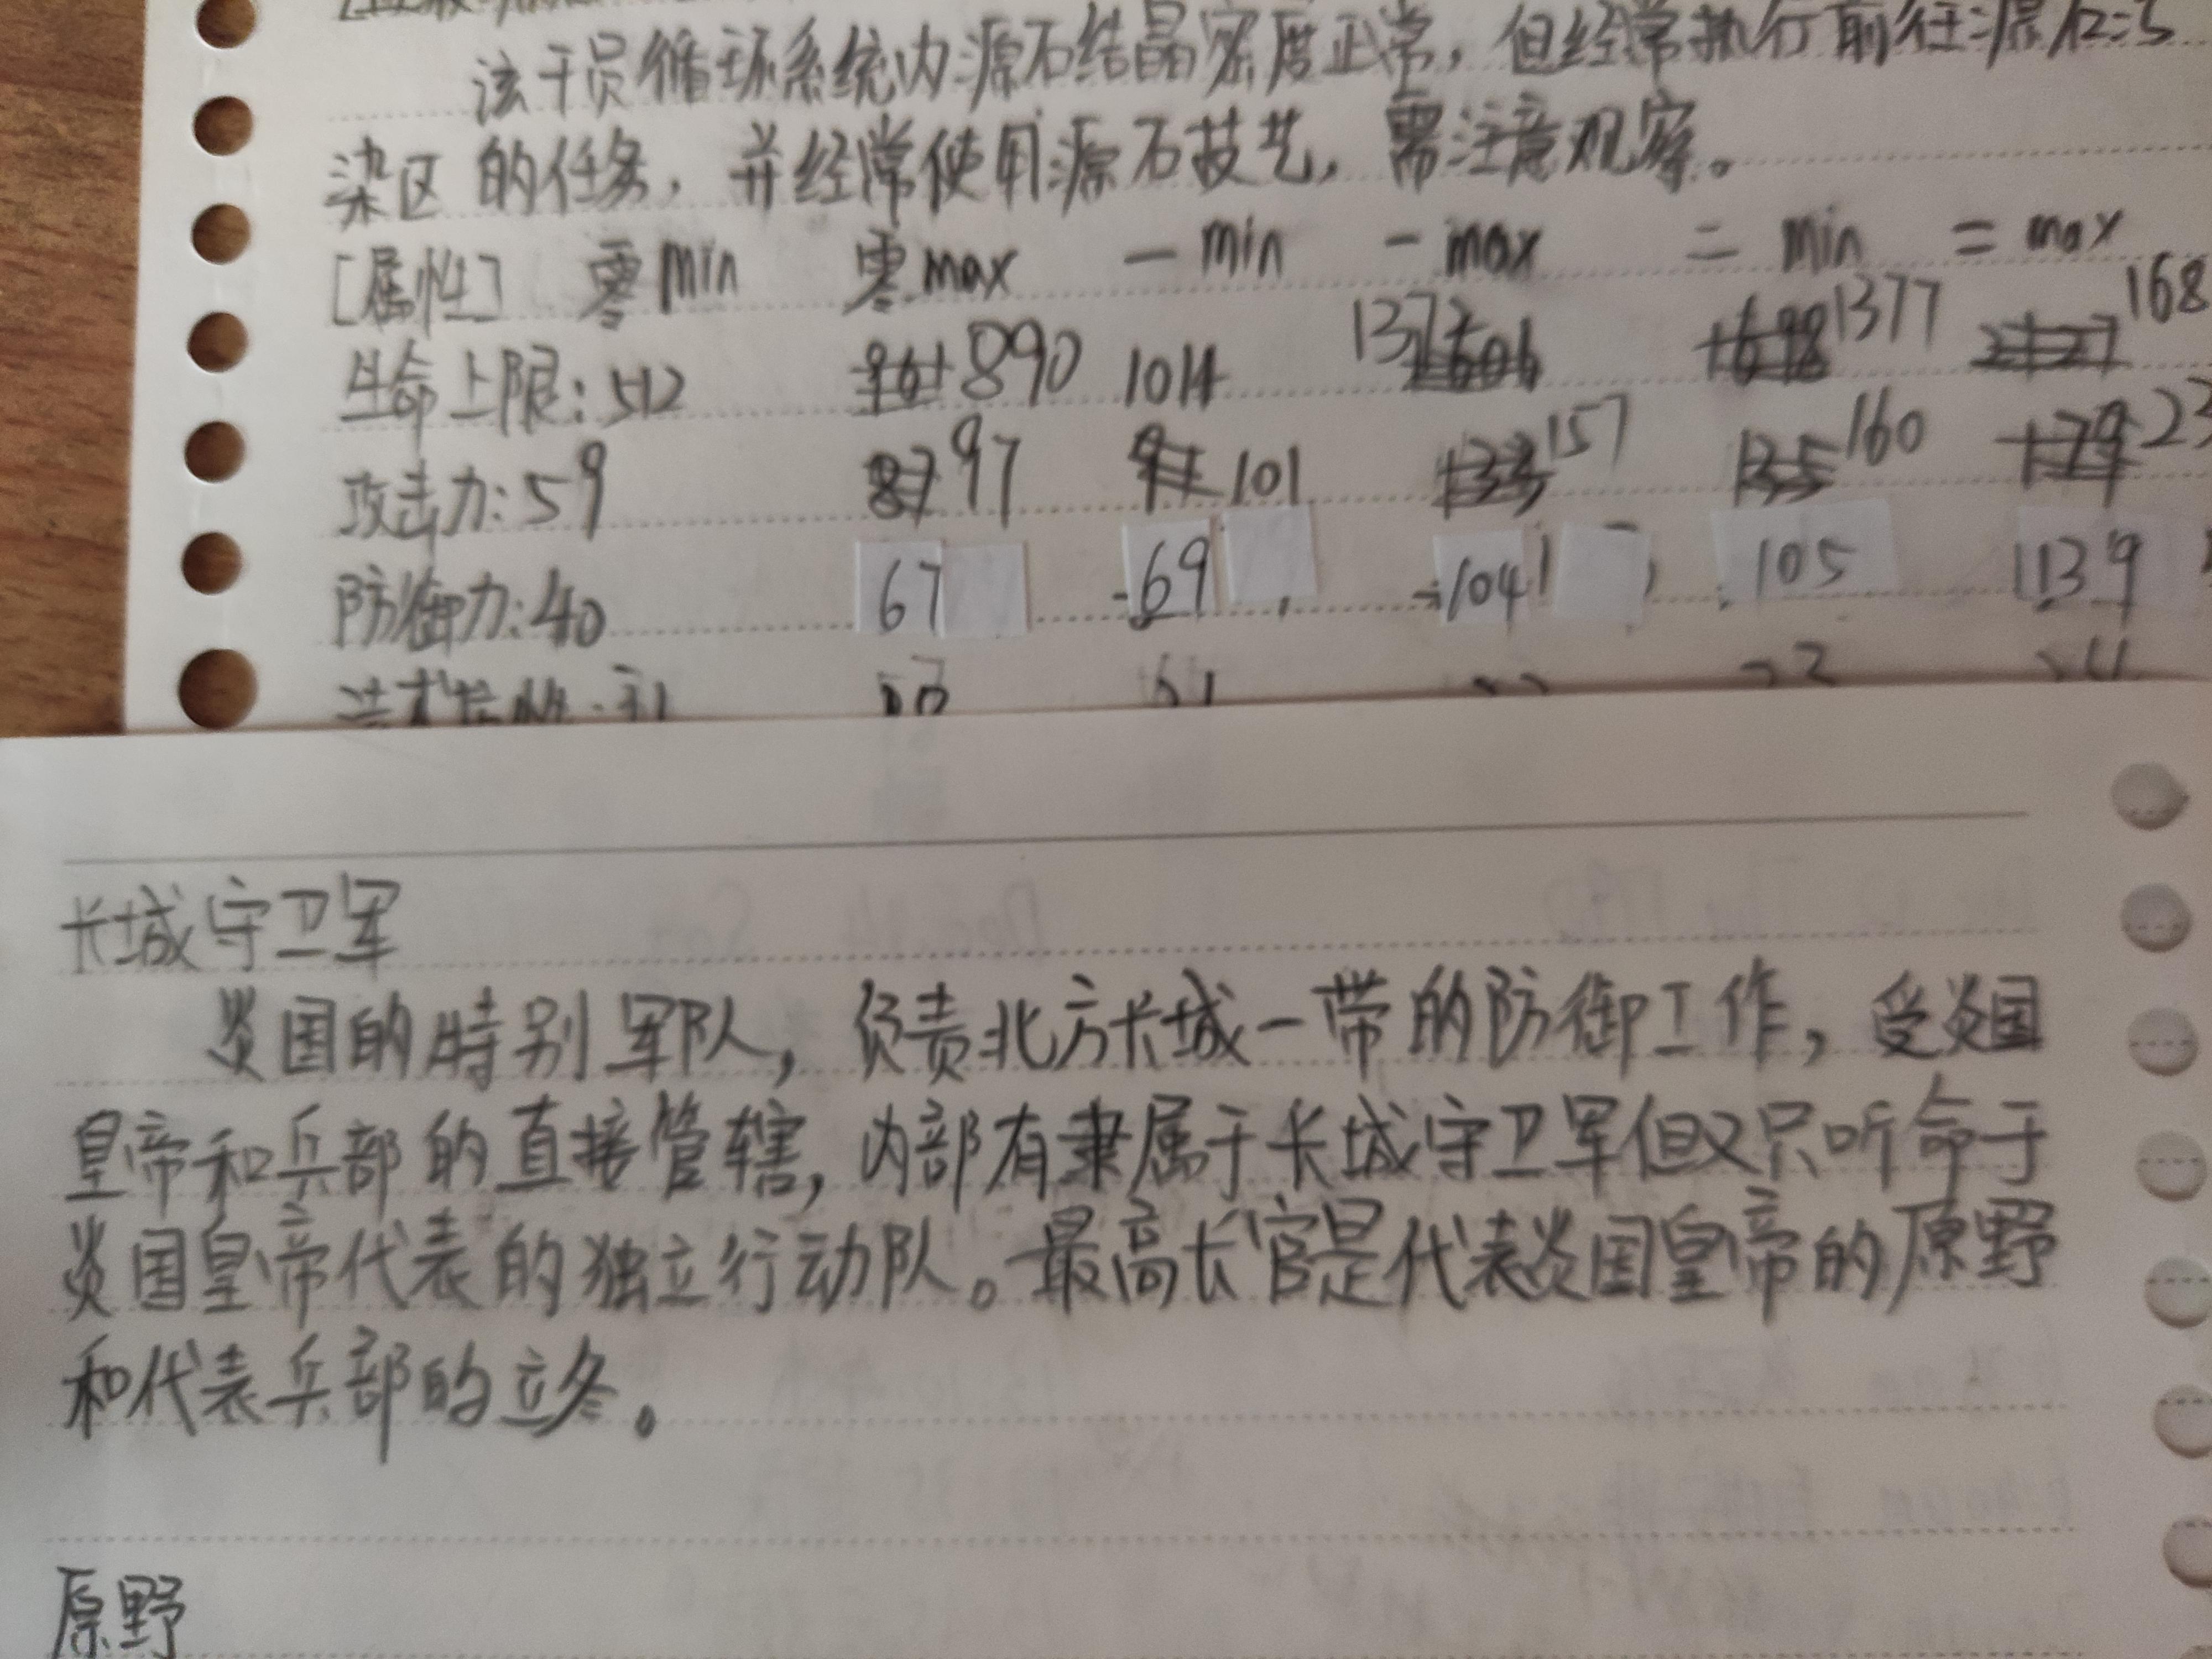 该干员循环系统内源石结晶密度正常，但经常执行前往源石污
染区的任务，并经常使用源石技艺，需注意观察。
[属性] 零min 零max 一min 一max 二min 二max
生命上限：512 890 1014 1377 168
攻击力：59 97 101 157 160 23
防御力：40 67 69 104 105 139
长城守卫军
炎国的特别军队，负责北方长城一带的防御工作，受炎国
皇帝和兵部的直接管辖，内部有隶属于长城守卫军但又只听命于
炎国皇帝代表的独立行动队。最高长官是代表炎国皇帝的原野
和代表兵部的立冬。
原野